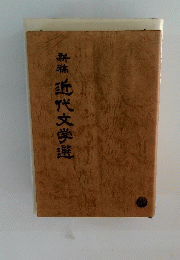 新編
近代文学選